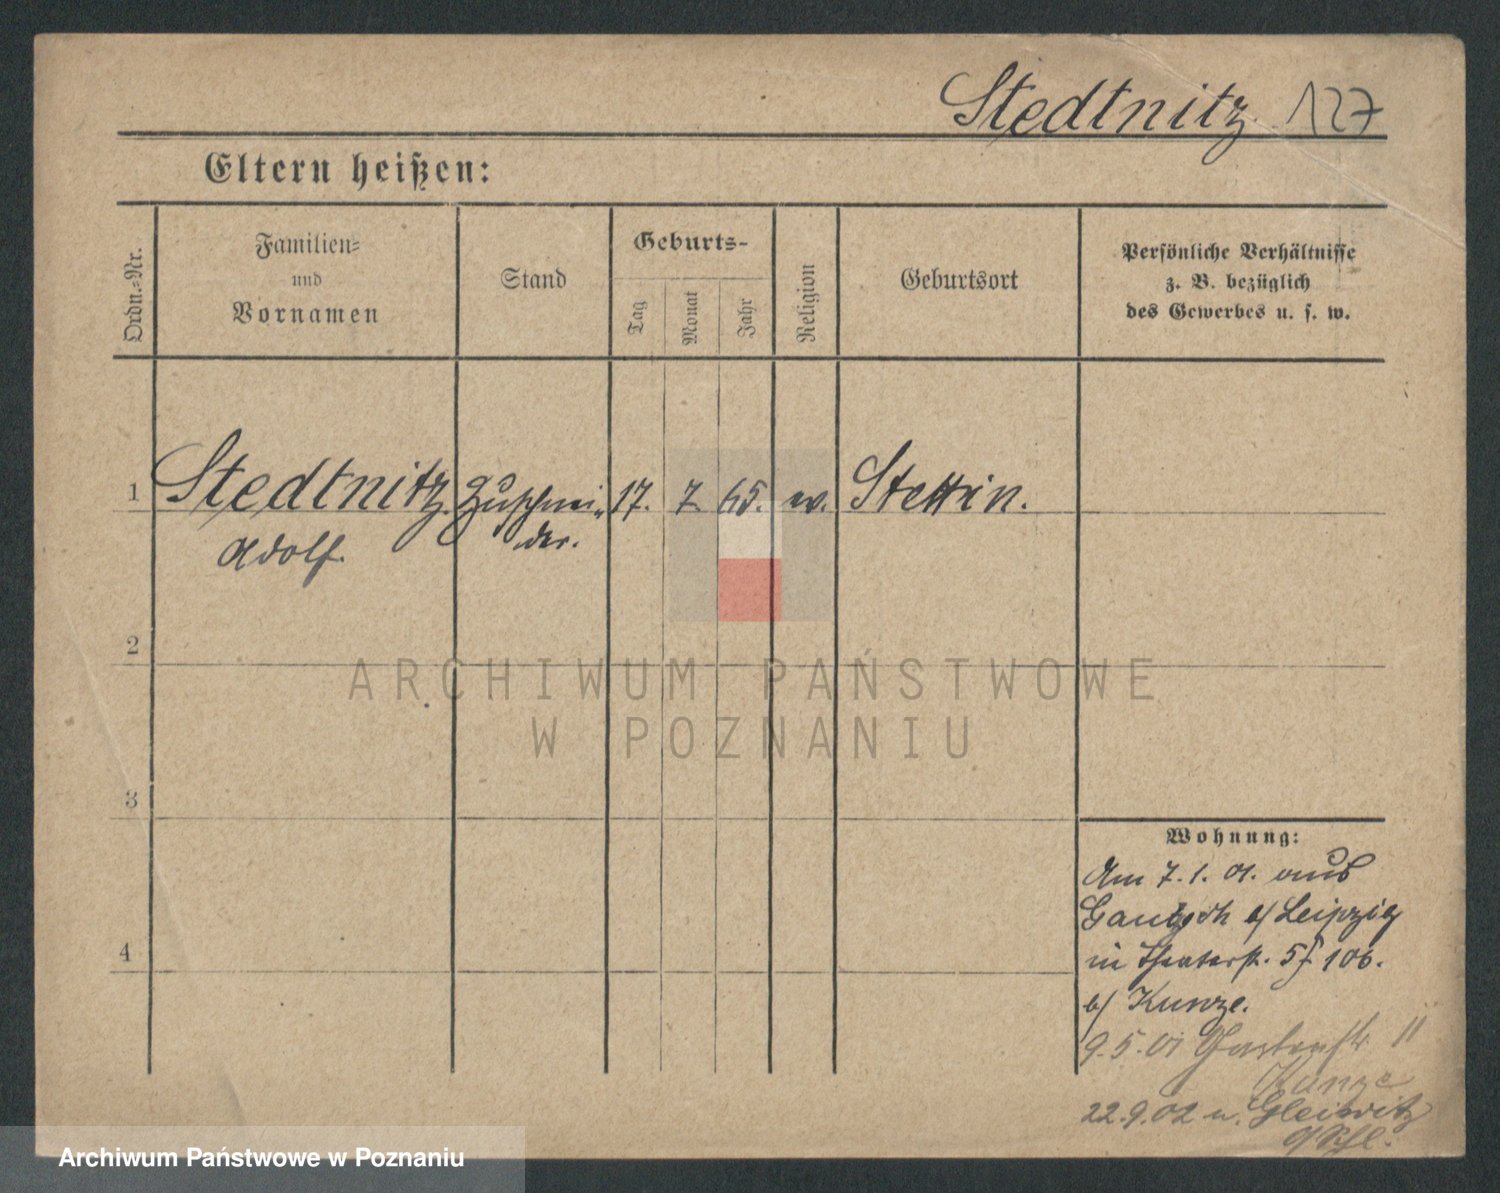 Stedtnitz. 127
Eltern heißen:
Ordn.-Nr.
Familien-
und
Vornamen
Stand
Geburts-
Tag
Monat
Jahr
Religion
Geburtsort
Persönliche Verhältnisse
z. B. bezüglich
des Gewerbes u. s. w.
1 Stedtnitz. Zuschnei- 17. 7. 65. ev. Stettin.
Adolf. der.
2
ARCHIWUM PAŃSTWOWE
W POZNANIU
3
Wohnung:
Am 7. 1. 01. aus
Gautzsch b/ Leipzig
in Theaterstr. 5 106.
4
b/ Kunze.
9. 5. 01 Gartenstr. 11
Kunze
22. 9. 02 n. Gleiwitz
O/Schl.
Archiwum Państwowe w Poznaniu